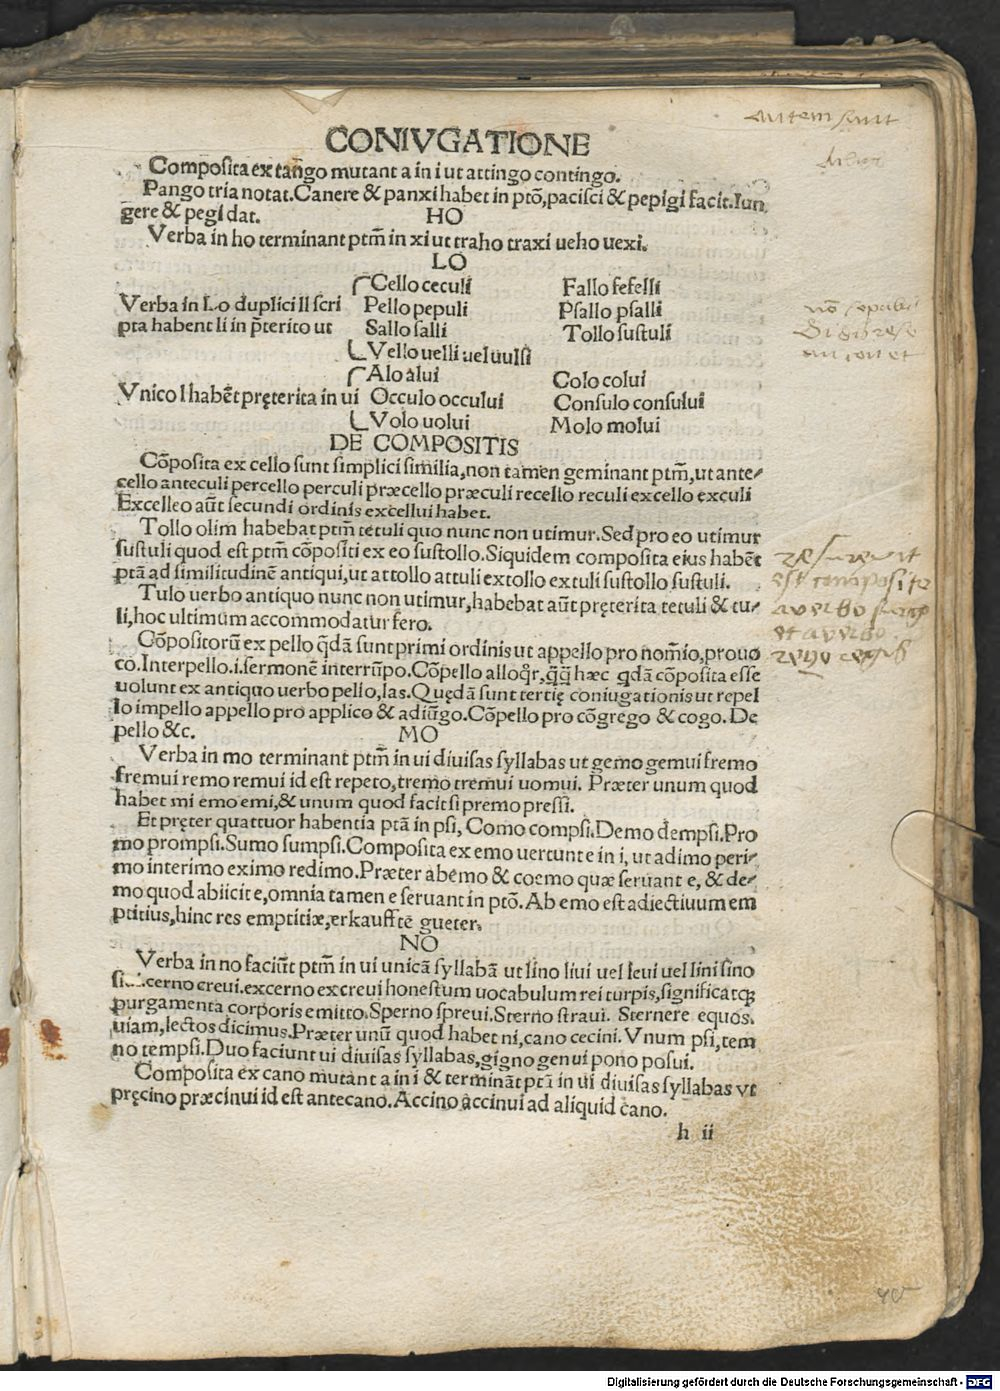 CONIVGATIONE
Composita ex tango mutant a in i ut attingo contingo.
Pango tria notat. Canere & panxi habet in ptō, pacisci & pepigi facit. Iun
gere & pegi dat.
HO
Verba in ho terminant ptm̄ in xi ut traho traxi ueho uexi.
LO
Cello ceculi Fallo fefelli
Verba in Lo duplici ll scri Pello pepuli Psallo psalli
pta habent li in p̄terito ut Sallo salli Tollo sustuli
Vello uelli uel uulsi
Alo alui Colo colui
Vnico l habēt pręterita in ui Occulo occului Consulo consului
Volo uolui Molo molui
DE COMPOSITIS
Cōposita ex cello sunt simplici similia, non tamen geminant ptm̄, ut ante-
cello anteculi percello perculi præcello præculi recello reculi excello exculi
Excelleo aūt secundi ordinis excellui habet.
Tollo olim habebat ptm̄ tetuli quo nunc non utimur. Sed pro eo utimur
sustuli quod est ptm̄ cōpositi ex eo sustollo. Siquidem composita eius habēt
ptā ad similitudinē antiqui, ut attollo attuli extollo extuli sustollo sustuli.
Tulo uerbo antiquo nunc non utimur, habebat aūt pręterita tetuli & tu-
li, hoc ultimum accommodatur fero.
Cōpositorū ex pello qdā sunt primi ordinis ut appello pro nom̄io, prouo
co. Interpello .i. sermonē interrūpo. Cōpello alloqr, q̄q̄ hæc qdā cōposita esse
uolunt ex antiquo uerbo pello, las. Quędā sunt tertię coniugationis ut repel
lo impello appello pro applico & adiūgo. Cōpello pro cōgrego & cogo. De
pello &c.
MO
Verba in mo terminant ptm̄ in ui diuisas syllabas ut gemo gemui fremo
fremui remo remui id est repeto, tremo tremui uomui. Præter unum quod
habet mi emo emi, & unum quod facit si premo pressi.
Et pręter quattuor habentia ptā in psi, Como compsi. Demo dempsi. Pro
mo prompsi. Sumo sumpsi. Composita ex emo uertunt e in i, ut adimo peri-
mo interimo eximo redimo. Præter abemo & coemo quæ seruant e, & de-
mo quod abiicit e, omnia tamen e seruant in ptō. Ab emo est adiectiuum em
ptitius, hinc res emptitiæ, erkaufftē gueter.
NO
Verba in no faciūt ptm̄ in ui unicā syllabā ut lino liui uel leui uel lini sino
cerno creui. excerno excreui honestum uocabulum rei turpis, significatq;
purgamenta corporis emitto. Sperno spreui. Sterno straui. Sternere equos.
uiam, lectos dicimus. Præter unū quod habet ni, cano cecini. Vnum psi, tem
no tempsi. Duo faciunt ui diuisas syllabas, gigno genui pono posui.
Composita ex cano mutant a in i & termināt ptā in ui diuisas syllabas ut
pręcino præcinui id est antecano. Accino accinui ad aliquid cano.
h ii
autem sunt
est composite
a verbo
et a verbo
rego regis
Digitalisierung gefördert durch die Deutsche Forschungsgemeinschaft - DFG